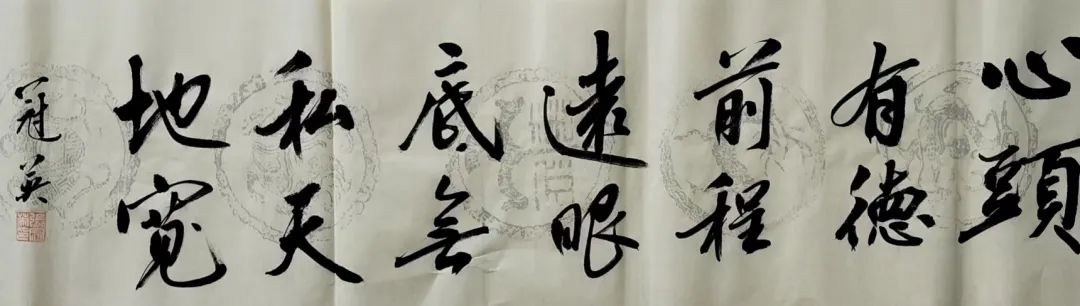 心頭
有德
前程
遠眼
底無
私天
地寬
冠英